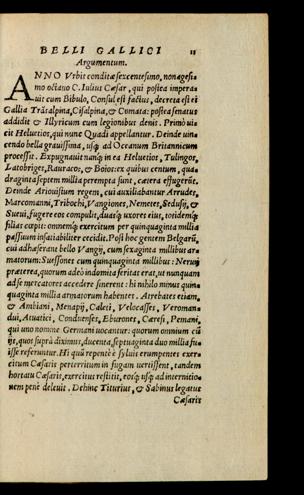 BELLI GALLICI 11
Argumentum.
ANNO Vrbis conditæ sexcentesimo, nonagesi-
mo octauo C. Iulius Cæsar, qui postea impera-
uit cum Bibulo, Consul est factus, decreta est ei
Gallia Trãsalpina, Cisalpina, & Comata: postea senatus
addidit & Illyricum cum legionibus denis. Primò ui-
cit Heluetios, qui nunc Quadi appellantur. Deinde uin-
cendo bella grauissima, usq; ad Oceanum Britannicum
processit. Expugnauit namq; in ea Heluetios, Tulingos,
Latobriges, Rauracos, & Boios: ex quibus centum, qua-
draginta septem millia perempta sunt, cætera effugerũt.
Deinde Ariouistum regem, cui auxiliabantur Arrudes,
Marcomanni, Tribochi, Vangiones, Nemetes, Sedusij, &
Sueui, fugere eos compulit, duasq; uxores eius, totidemq;
filias cœpit: omnemq; exercitum per quinquaginta millia
passuum insatiabiliter cecidit. Post hoc gentem Belgarũ,
cui adhæserant bello Vangij, cum sexaginta millibus ar-
matorum: Suessones cum quinquaginta millibus: Neruij
præterea, quorum adeò indomita feritas erat, ut nunquam
ad se mercatores accedere sinerent: hi nihilo minus quin
quaginta millia armatorum habentes. Atrebates etiam,
& Ambiani, Menapij, Caleti, Velocasses, Veroman-
dui, Atuatici, Condurses, Eburones, Cæresi, Pemani,
qui uno nomine Germani uocantur: quorum omnium cũ
ijs, quos suprà diximus, ducenta, septuaginta duo millia fu-
isse referuntur. Hi quũ repentè è syluis erumpentes exer-
citum Cæsaris perterritum in fugam uertissent, tandem
hortatu Cæsaris, exercitus restitit, eosq; usq; ad internitio-
nem penè deleuit. Dehinc Titurius, & Sabinus legatus
Cæsaris